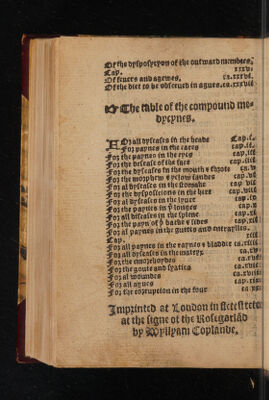 Of the dysposycyon of the outward membres,
Cap. xxxvi.
Of feuers and agewes, ca.xxxvii.
Of the diet to be obserued in agues.ca.xxxviii
The table of the compound me-
dycynes.
FOr all dyseases in the heade Cap.i.
For paynes in the eares cap.ii.
For the paynes in the eyes cap.iii
For the disease of the face cap.iiii
For the dyseases in the mouth & throte ca.v
For the morphew & yelow iaundes cap.vi
For al dyseases in the stomake cap.vii
For the dysposicions in the liuer cap.viii
For al dyseases in the hart cap.ix
For the paynes in the longes cap.x
For all diseases in the splene cap.xi
For the payn of the backe & sides cap.xii
For al paynes in the guttes and entrayles.
Cap. xiii
For all paynes in the raynes & bladder ca.xiiii.
For all dyseases in the matryx ca.xv
For the emorhoydes ca.xvi
For the goute and syatica
For al woundes
For all agues
For the corruption in the
Imprinted at London in
at the signe of the Rosegarlād
by Wyllyam Coplande.